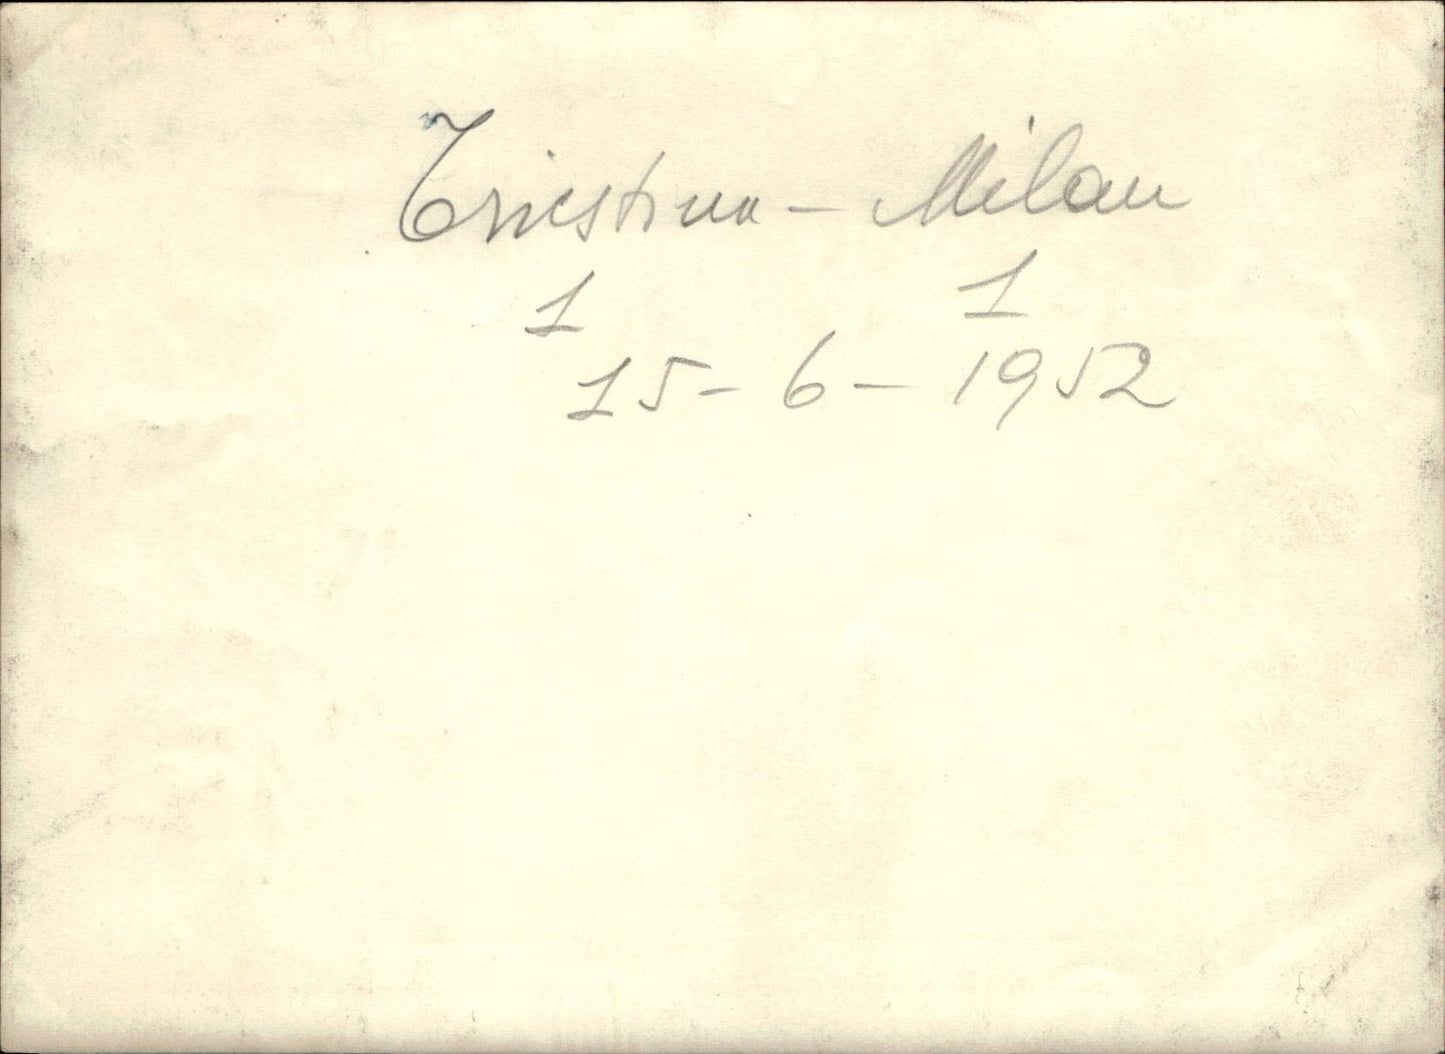 Triestina - Milan
1 1
15 - 6 - 1952